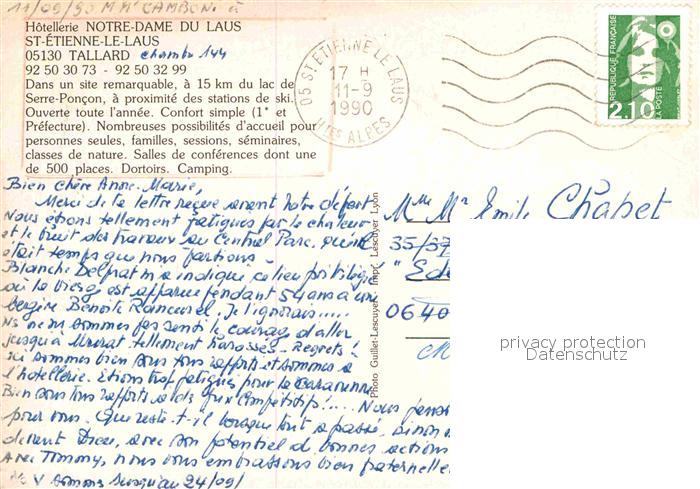 11/09/90 M Mme CAMBON à
Hôtellerie NOTRE-DAME DU LAUS
ST-ÉTIENNE-LE-LAUS
05130 TALLARD chambre 144
92 50 30 73 - 92 50 32 99
Dans un site remarquable, à 15 km du lac de
Serre-Ponçon, à proximité des stations de ski.
Ouverte toute l'année. Confort simple (1* et
Préfecture). Nombreuses possibilités d'accueil pour
personnes seules, familles, sessions, séminaires,
classes de nature. Salles de conférences dont une
de 500 places. Dortoirs. Camping.
05 ST ETIENNE LE LAUS
17 H
11-9
1990
Htes ALPES
REPUBLIQUE FRANÇAISE
2,10
LA POSTE
Bien chère Anne-Marie,
Merci de ta lettre reçue avant notre départ
Nous étions tellement fatigués par la chaleur
et le bruit des travaux au Central Parc, qu'il
était temps que nous partions -
Blanche Delprat m'a indiqué ce lieu privilégié
où la Vierge est apparue pendant 54 ans à une
bergère Benoite Rencurel. Je l'ignorais.....
Ns ne ns sommes pas senti le courage d'aller
jusqu'à tellement harassés - Regrets!
ici sommes bien sous tous rapports et sommes à
l'hôtellerie. Etions trop fatigués pour la caravanne
Bien sous tous rapports et à des prix compétitifs!.... Nous pens
pour vous. Que reste-t-il lorsque tout a passé, sinon
devant Dieu, avec son potentiel de bonnes actions
Avec Tommy, nous vous embrassons bien fraternelle
Ns y sommes jusqu'au 24/09/
Photo Guillet-Lescuyer - Impr. Lescuyer Lyon
Mme Mr Emile Chabet
35/37
"Ede
0640
privacy protection
Datenschutz